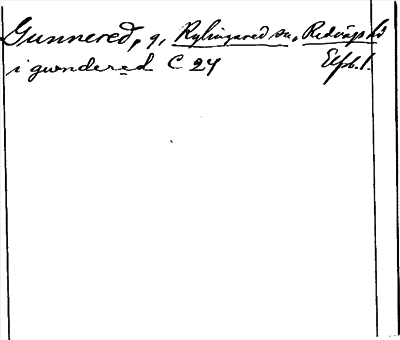 Gunnered, g, Ryhingared sn, Redvägs hd
i gwndered C 24 Elfsb. l.